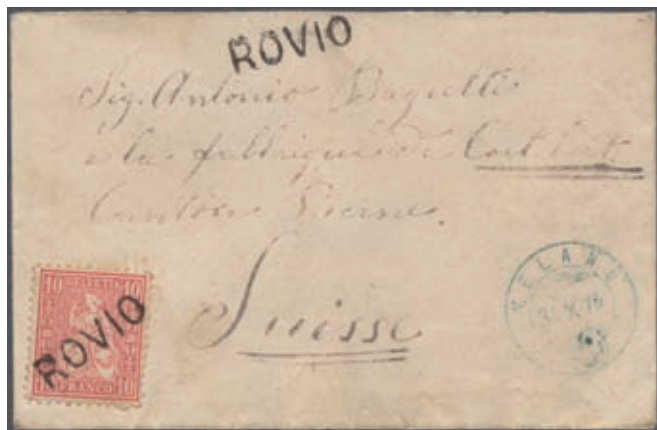 ROVIO
Sig. Antonio Bagutti
à la fabbrique de
Canton Berne.
Suisse
10 HELVETIA 10
ROVIO
10 FRANCO 10
MELANO
X 76